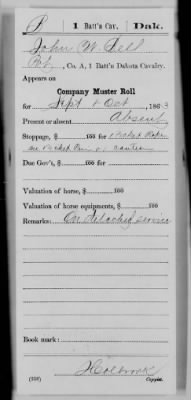 1 Batt'n Cav. Dak.
John W. Pell
Pvt, Co. A, 1 Batt'n Dakota Cavalry.
Appears on
Company Muster Roll
for Sept & Oct, 1863
Present or absent Absent
Stoppage, $ 100 for 1 Picket Rope
one Picket Pin 1 canteen
Due Gov't, $ 100 for
Valuation of horse, $ 100
Valuation of horse equipments, $ 100
Remarks: On detached service
Book mark:
Holbrook
(858) Copyist.